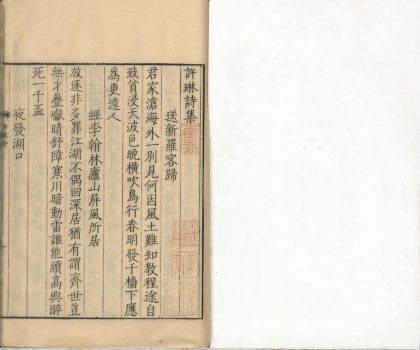 許琳詩集
送新羅客歸
君家滄海外一別見何因風土雖知教程途自
致貧浸天波色晚橫吹鳥行春明發千檣下應
爲更遠人
經李翰林廬山屏風所居
放逐非多罪江湖不偶回深居猶有謂濟世豈
無才疊巘晴舒障寒川暗動雷誰能續高興醉
死一千盃
夜發湖口